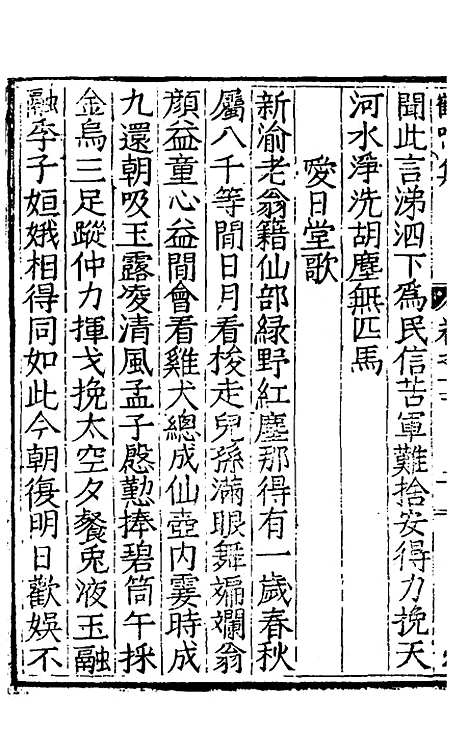 聞此言涕泗下爲民信苦軍難捨安得力挽天
河水淨洗胡塵無匹馬
愛日堂歌
新渝老翁籍仙部緑野紅塵那得有一歲春秋
屬八千等閒日月看梭走兒孫滿眼舞斒斕翁
顔益童心益閒會看雞犬總成仙壺內霎時成
九還朝吸玉露凌清風孟子慇懃捧碧筒午採
金烏三足蹤仲力揮戈挽太空夕餐兎液玉融
融季子姮娥相得同如此今朝復明日歡娛不